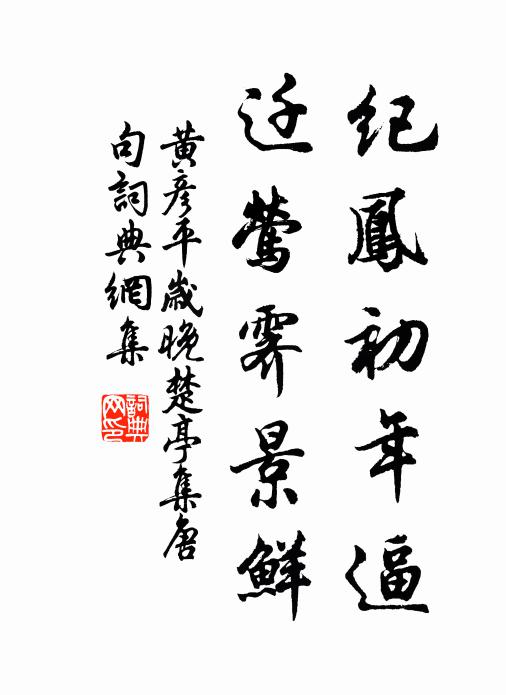 纪鳳初年逼
迁鶯霽景鮮
黄彦平歲晚楚亭集唐
句詞典網集
詞典网印